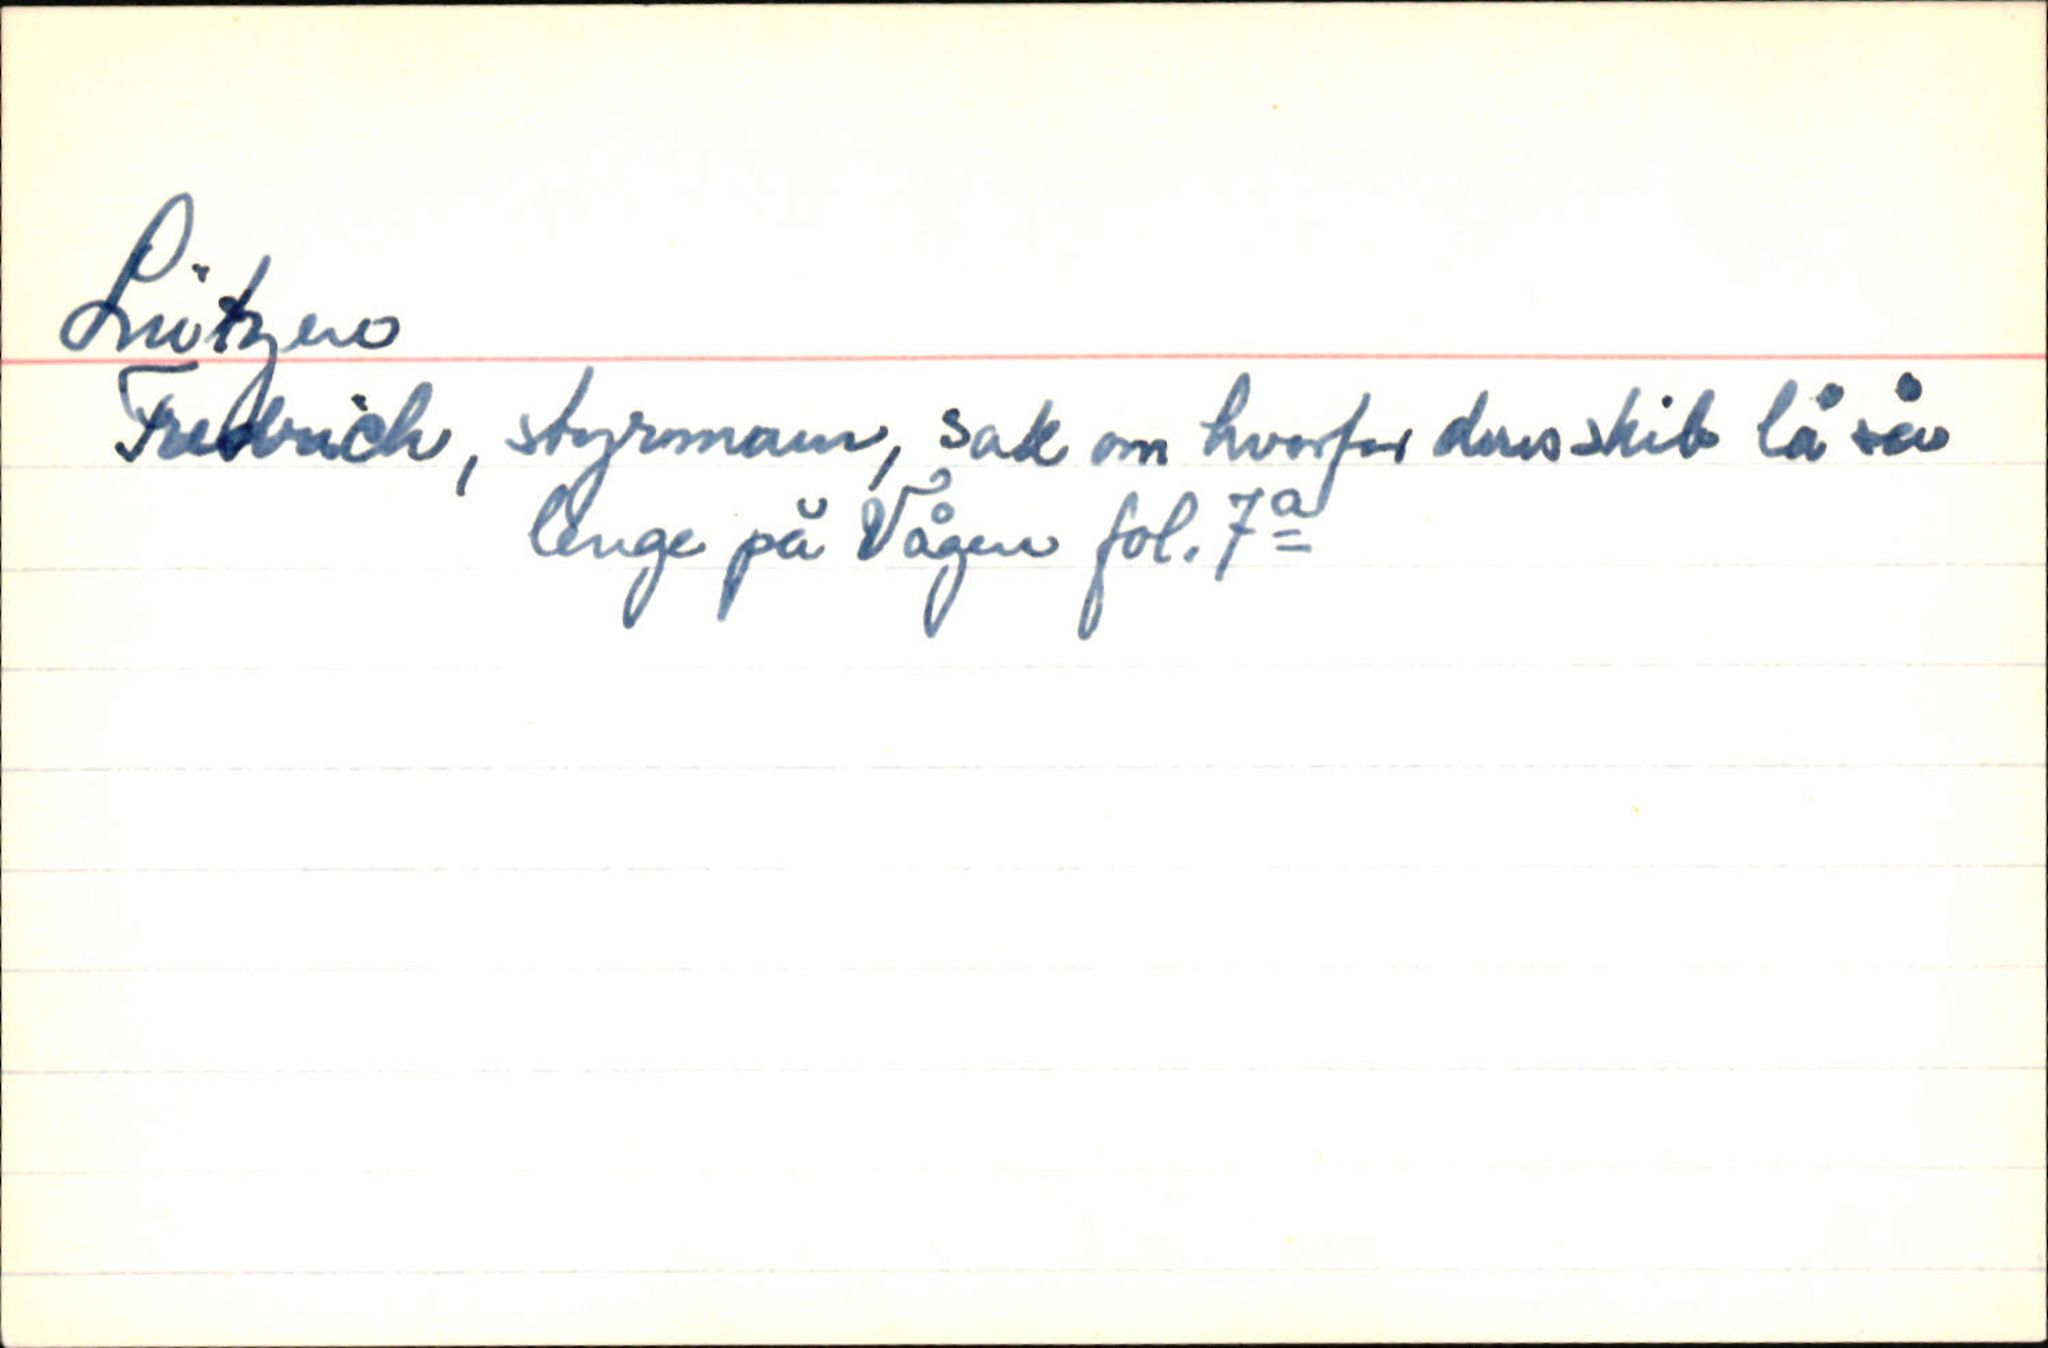 Lützen
Fredrich, styrmann, sak om hvorfor deres skib lå så
lenge på Vågen fol. 7a